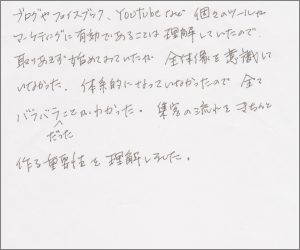 ブログやフェイスブック、YouTubeなど 個々のツールや
マーケティングに有効であることは理解していたので、
取りあえず始めておっていたが 全体像を意識して
いなかった。体系的になっていなかったので 全て
バラバラことがわかった。集客の流れをきちんと
だった
作る重要性を理解しました。